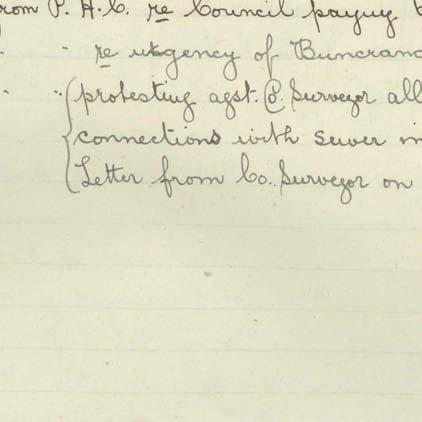 rom P. H. C. re Council payng
" " re urgency of Buncranc
" " protesting agst. Co. Surveyor all
connections with sewer in
Letter from Co. Surveyor on